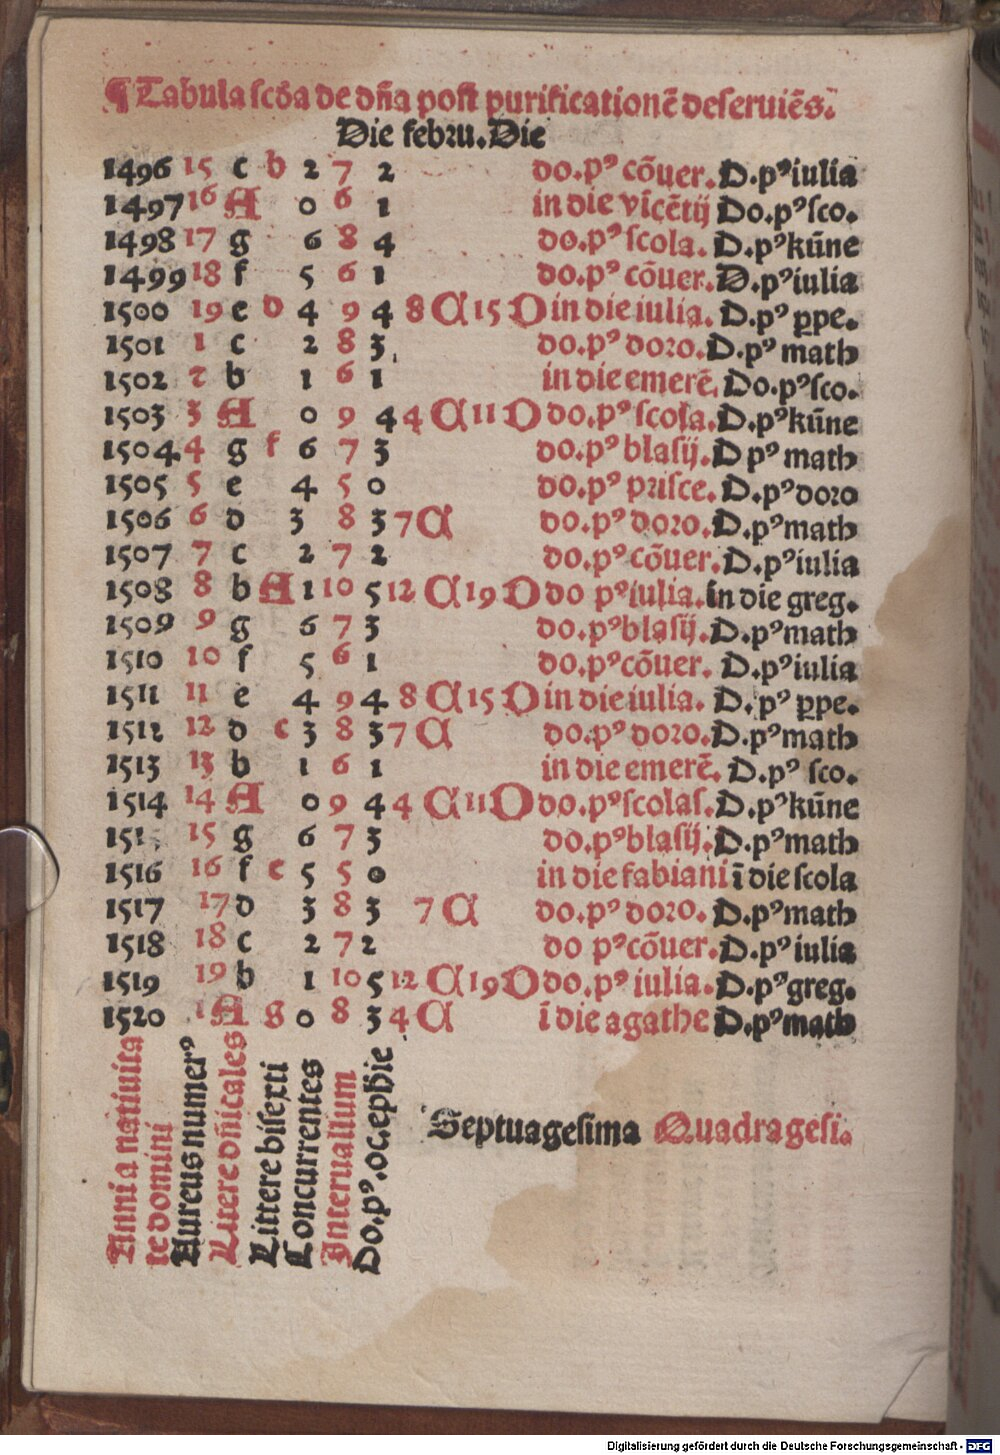 ¶ Tabula scd̄a de dn̄a post purificationē deseruiēs.
Die febru. Die
1496 15 c b 2 7 2 do.pꝰ cōuer. D.pꝰ iulia
1497 16 A 0 6 1 in die vicētij Do.pꝰ sco.
1498 17 g 6 8 4 do.pꝰ scola. D.pꝰ kūne
1499 18 f 5 6 1 do.pꝰ cōuer. D.pꝰ iulia
1500 19 e d 4 9 4 8 C 15 D in die iulia. D.pꝰ ꝑpe.
1501 1 c 2 8 3 do.pꝰ doro. D.pꝰ math
1502 2 b 1 6 1 in die emerē. Do.pꝰ sco.
1503 3 A 0 9 4 4 C 11 D do.pꝰ scola. D.pꝰ kūne
1504 4 g f 6 7 3 do.pꝰ blasij. D pꝰ math
1505 5 e 4 5 0 do.pꝰ prisce. D.pꝰ doro
1506 6 d 3 8 3 7 C do.pꝰ doro. D.pꝰ math
1507 7 c 2 7 2 do.pꝰ cōuer. D.pꝰ iulia
1508 8 b A 1 10 5 12 C 19 D do pꝰ iulia. in die greg.
1509 9 g 6 7 3 do.pꝰ blasij. D.pꝰ math
1510 10 f 5 6 1 do.pꝰ cōuer. D.pꝰ iulia
1511 11 e 4 9 4 8 C 15 D in die iulia. D.pꝰ ꝑpe.
1512 12 d c 3 8 3 7 C do.pꝰ doro. D.pꝰ math
1513 13 b 1 6 1 in die emerē. D.pꝰ sco.
1514 14 A 0 9 4 4 C 11 D do.pꝰ scolas. D.pꝰ kūne
151 15 g 6 7 3 do.pꝰ blasij. D.pꝰ math
1516 16 f e 5 5 0 in die fabiani ī die scola
1517 17 d 3 8 3 7 C do.pꝰ doro. D.pꝰ math
1518 18 c 2 7 2 do pꝰ cōuer. D.pꝰ iulia
1519 19 b 1 10 5 12 C 19 D do.pꝰ iulia. D.pꝰ greg.
1520 1 A g 0 8 3 4 C ī die agathe D.pꝰ math
Anni a natiuita
te domini
Aureus numerꝰ
Littere dn̄icales
Littere bisexti
Concurrentes
Interuallum
Do.pꝰ.oc.ephie
Septuagesima Quadragesi.
Digitalisierung gefördert durch die Deutsche Forschungsgemeinschaft - DFG